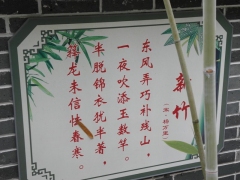 新竹
（宋·杨万里）
东风弄巧补残山，
一夜吹添玉数竿。
半脱锦衣犹半著，
箨龙未信怯春寒。